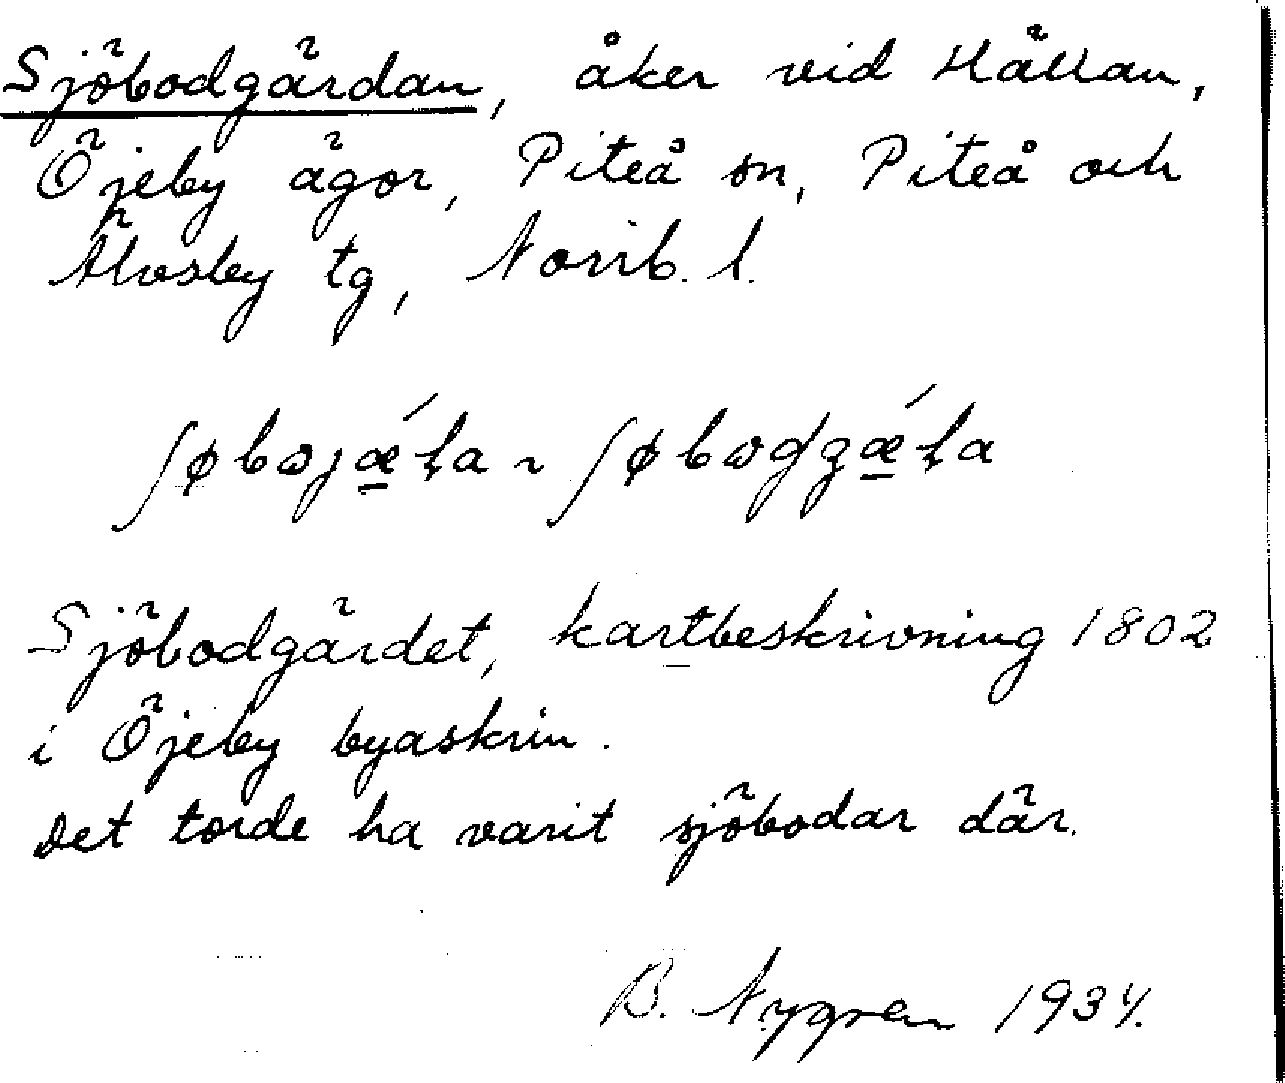 Sjöbodgärdan, åker vid Hällan,
Öjeby ägor, Piteå sn, Piteå och
Älvsby tg, Norrb. l.
ʃøbωjǽ̲ɽa ~ ʃøbωdgǽ̲ɽa
Sjöbodgärdet, kartbeskrivning 1802
i Öjeby byaskrin.
Det torde ha varit sjöbodar där.
B. Nygren 1934.